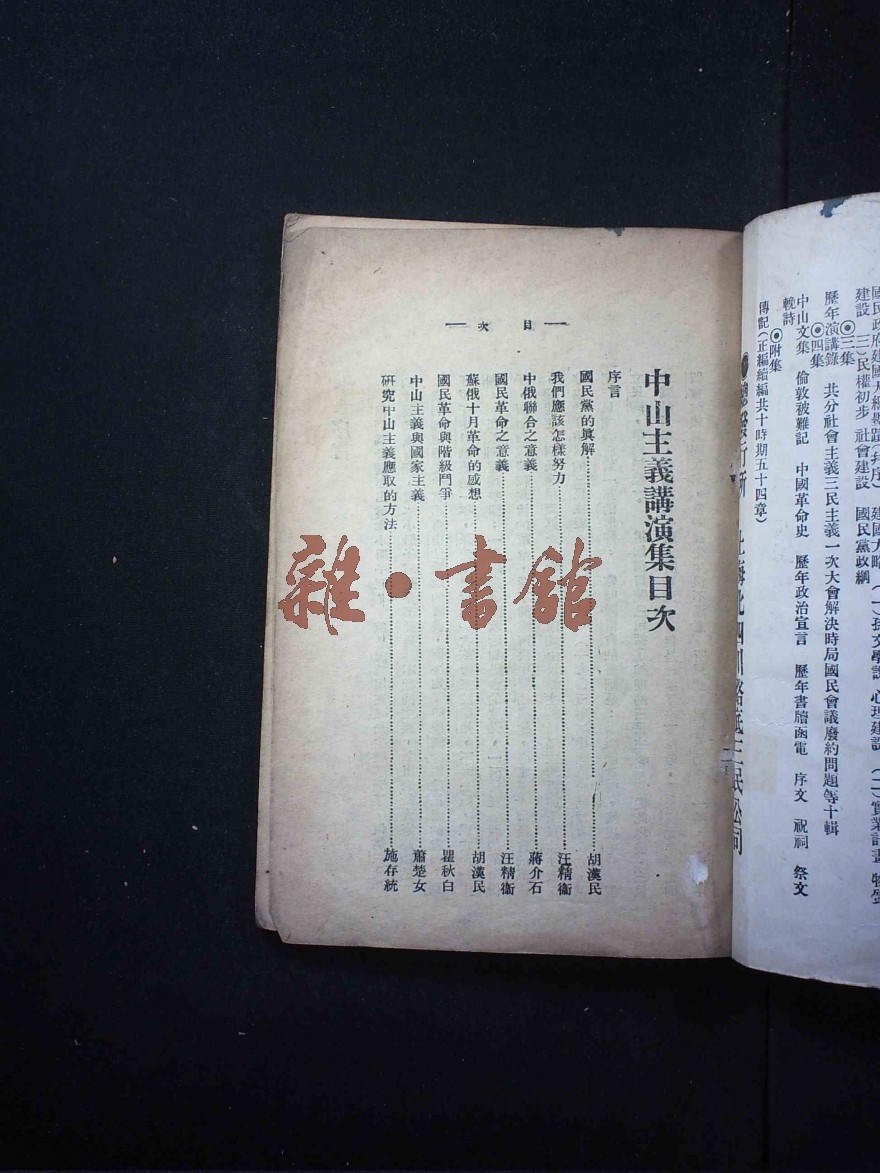 國民政府建國大綱
建設 (三)民權初步 社會建設 國民黨政綱
◉三集
歷年演講錄 共分社會主義三民主義一次大會解決時局國民會議廢約問題等十輯
◉四集
中山文集 倫敦被難記 中國革命史 歷年政治宣言 歷年書牘函電 序文 祝詞 祭文
輓詩
◉附集
傳記(正編續編共十時期五十四章)
上海北四川路底三民公司
目次
中山主義講演集目次
序言
國民黨的眞解 胡漢民
我們應該怎樣努力 汪精衞
中俄聯合之意義 蔣介石
國民革命之意義 汪精衞
蘇俄十月革命的感想 胡漢民
國民革命與階級鬥爭 瞿秋白
中山主義與國家主義 蕭楚女
研究中山主義應取的方法 施存統
雜·書館